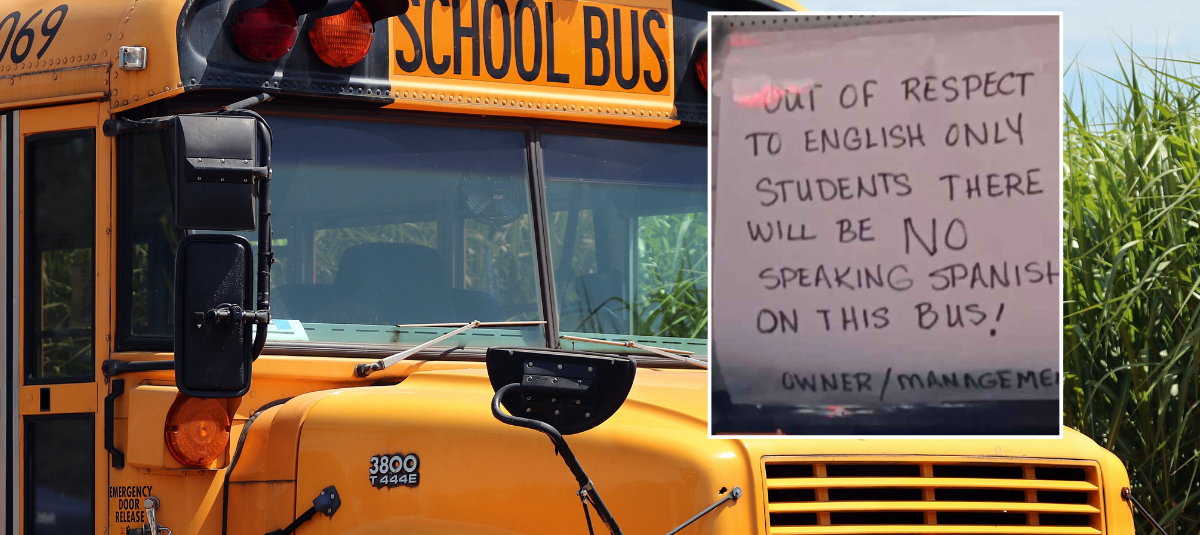 069
SCHOOL BUS
OUT OF RESPECT
TO ENGLISH ONLY
STUDENTS THERE
WILL BE NO
SPEAKING SPANISH
ON THIS BUS!
OWNER/MANAGEME
3800
T 444E
EMERGENCY
DOOR
RELEASE